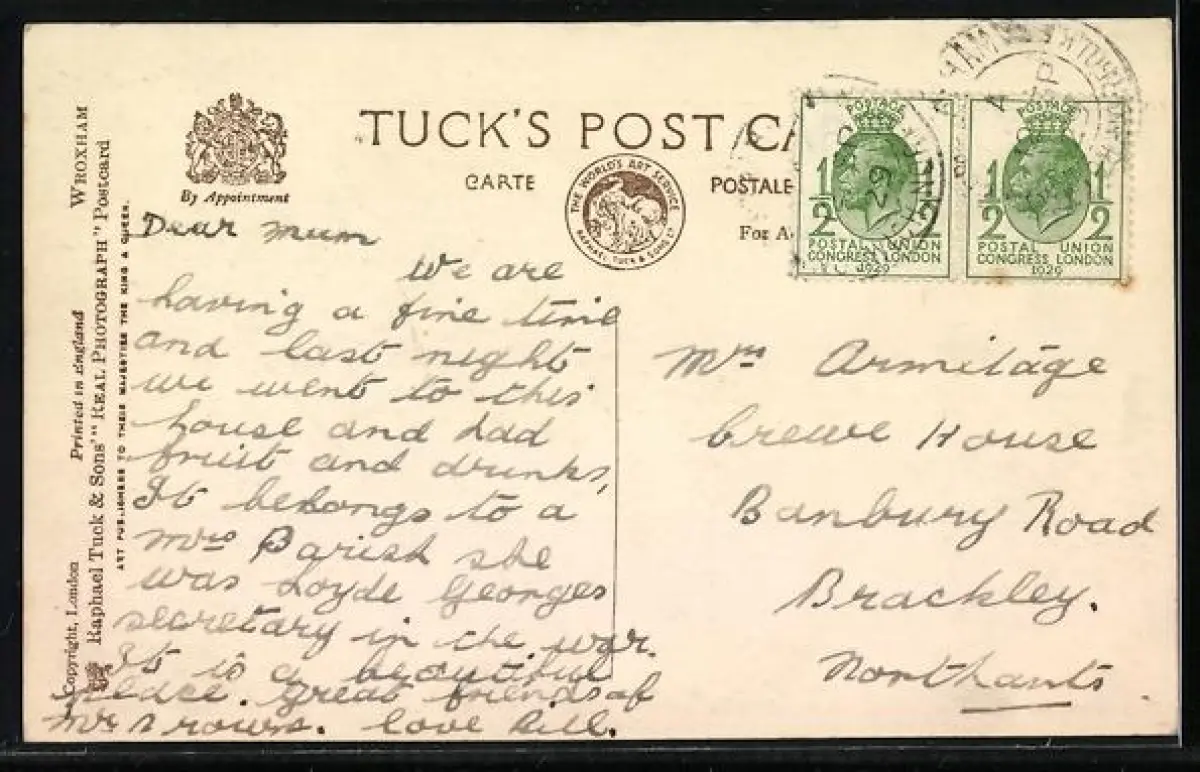 TUCK'S POST CA
CARTE
POSTALE
By Appointment
THE WORLD'S ART SERVICE
RAPHAEL TUCK & SONS LD
For A
WROXHAM
Printed in England
Copyright, London
Raphael Tuck & Sons' "REAL PHOTOGRAPH" Postcard
ART PUBLISHERS TO THEIR MAJESTIES THE KING & QUEEN.
POSTAGE
1/2 1/2
POSTAL UNION
CONGRESS, LONDON
1929
POSTAGE
1/2 1/2
POSTAL UNION
CONGRESS, LONDON
1929
29
Dear Mum
We are
having a fine time
and last night
we went to this
house and had
fruit and drinks,
It belongs to a
Mrs Parish she
was Loyde Georges
secretary in the war.
It is a beautiful
place. great friends of
Mr Brows. love Bill.
Mrs Armitage
Crewe House
Banbury Road
Brackley.
Northants